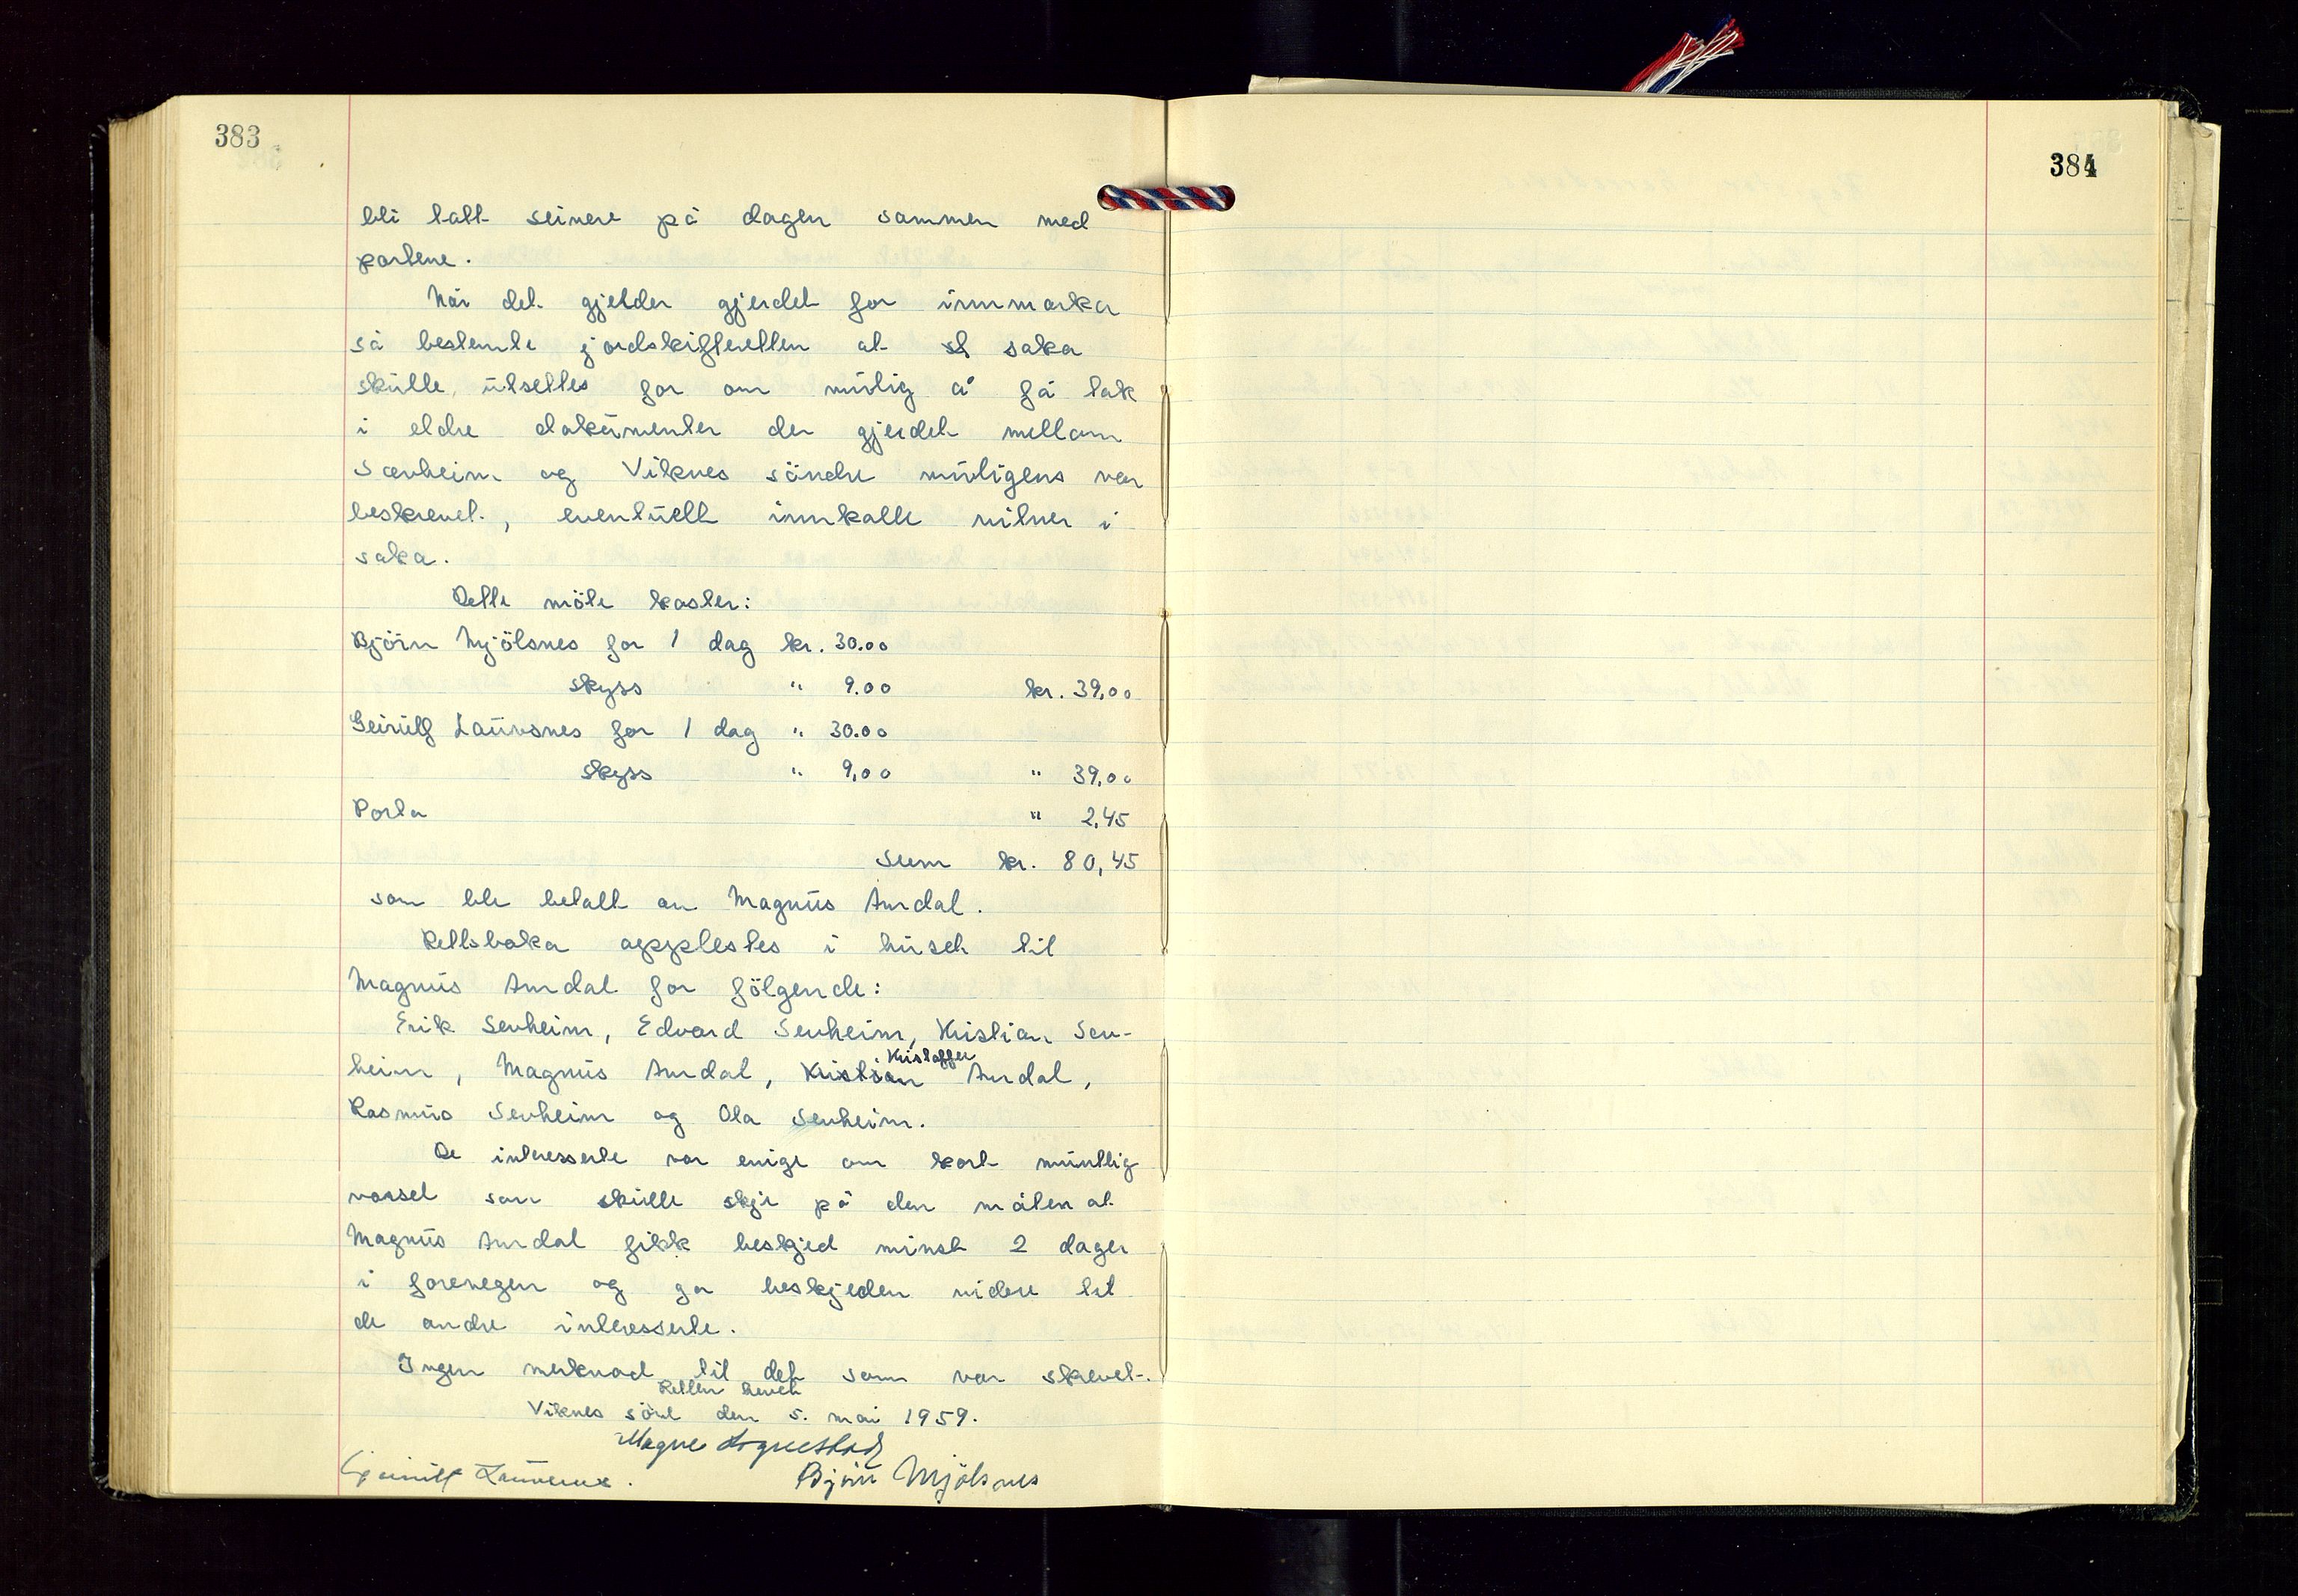 383
384
bli tatt seinere på dagen sammen med
partene.
Når det gjelder gjerdet for innmarka
så bestemte jordskifteretten at saka
skulle utsettes for om mulig å få tak
i eldre dokumenter der gjerdet mellom
Sævheim og Viknes söndre muligens var
beskrevet, eventuelt innkalle vitner i
saka.
Dette möte koster:
Björn Mjölsnes for 1 dag kr. 30.00
skyss " 9.00 kr. 39,00
Geirulf Lauvsnes for 1 dag " 30.00
skyss " 9,00 " 39,00
Porto " 2,45
Sum kr. 80,45
som ble betalt av Magnus Amdal.
Rettsboka opplestes i huset til
Magnus Amdal for fölgende:
Erik Sevheim, Edvard Sevheim, Kristian Sev-
heim, Magnus Amdal, Kristian Kristoffer Amdal,
Rasmus Sevheim og Ola Sevheim.
De interesserte var enige om kort muntlig
varsel som skulle skje på den måten at
Magnus Amdal fikk beskjed minst 2 dager
i forvegen og ga beskjeden videre til
de andre interesserte.
Ingen merknad til det som var skrevet.
Retten hevet
Viknes söre den 5. mai 1959.
Magne
Geirulf Lauvsnes. Björn Mjölsnes